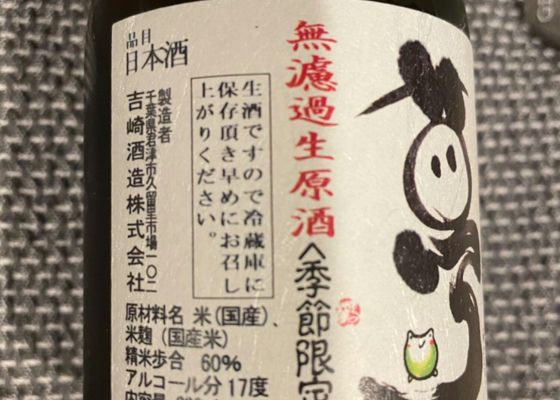 無濾過生原酒
<季節限定
品目
日本酒
生酒ですので冷蔵庫に
保存頂き早めにお召し
上がりください。
製造者
千葉県君津市久留里市場一〇二
吉崎酒造株式会社
原材料名 米(国産)、
米麹(国産米)
精米歩合 60%
アルコール分 17度
内容量